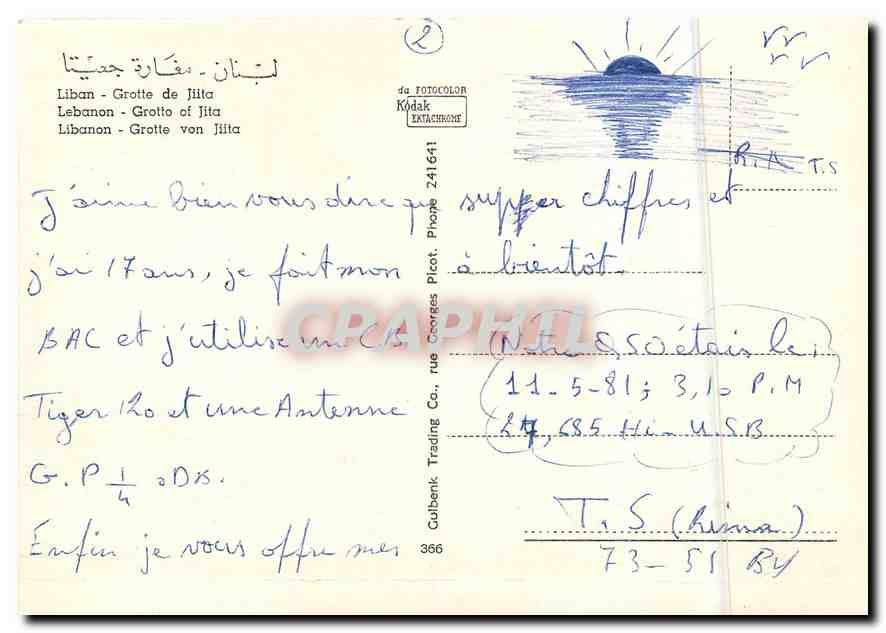 2
لبنان - مغارة جعيتا
Liban - Grotte de Jiita
Lebanon - Grotto of Jita
Libanon - Grotte von Jiita
da FOTOCOLOR
Kodak
EKTACHROME
R.A T.S
J'aime bien vous dire que
j'ai 17 ans, je fait mon
BAC et j'utilise un CB
Tiger 120 et une Antenne
G.P 1/4 oDB.
Enfin je vous offre mes
Gulbenk Trading Co., rue Georges Picot. Phone 241641
366
supper chiffres et
à bientôt.
Notre QSO étais le,
11-5-81; 3,10 P.M
27,685 Hi- USB
T.S (Rima)
73-51 BY
CPAPHIL